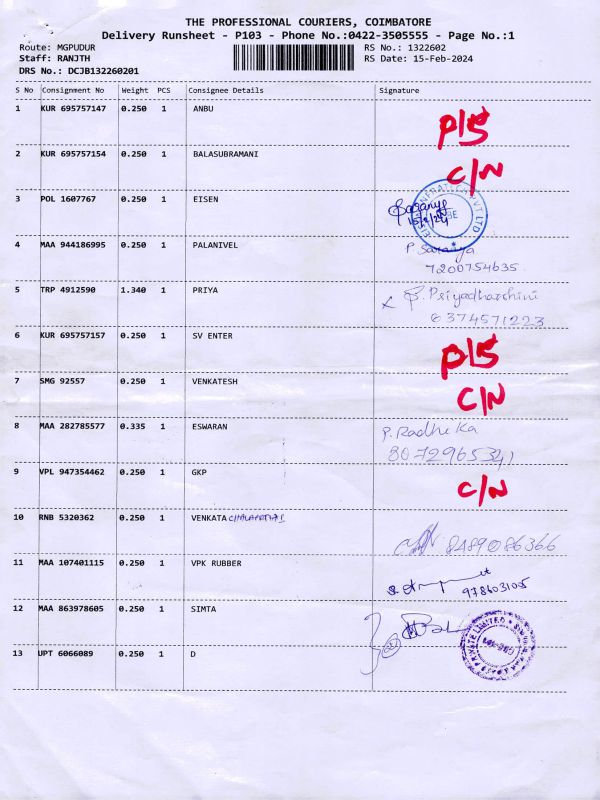 THE PROFESSIONAL COURIERS, COIMBATORE
Delivery Runsheet - P103 - Phone No.:0422-3505555 - Page No.:1
Route: MGPUDUR RS No.: 1322602
Staff: RANJTH RS Date: 15-Feb-2024
DRS No.: DCJB132260201
S No Consignment No Weight PCS Consignee Details Signature
1 KUR 695757147 0.250 1 ANBU P/S
2 KUR 695757154 0.250 1 BALASUBRAMANI C/N
3 POL 1607767 0.250 1 EISEN
15/2/24
4 MAA 944186995 0.250 1 PALANIVEL P. Saranya
7200754635
5 TRP 4912590 1.340 1 PRIYA S. Priyadharshini
6374571223
6 KUR 695757157 0.250 1 SV ENTER P/S
7 SMG 92557 0.250 1 VENKATESH C/N
8 MAA 282785577 0.335 1 ESWARAN P. Radhika
8072965341
9 VPL 947354462 0.250 1 GKP C/N
10 RNB 5320362 0.250 1 VENKATA 8489086366
11 MAA 107401115 0.250 1 VPK RUBBER
938603105
12 MAA 863978605 0.250 1 SIMTA
13 UPT 6066089 0.250 1 D